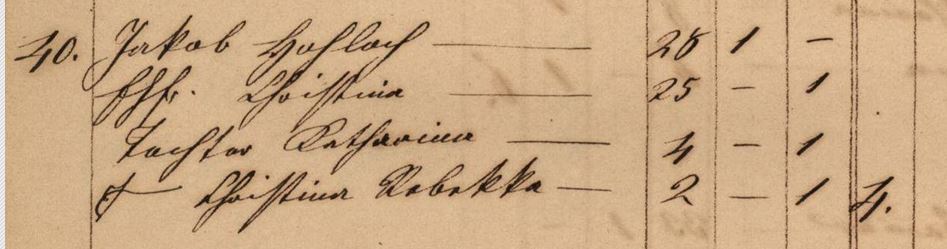 40. Jakob Hohloch — 28 1 —
Ehfr. Christina — 25 — 1
Tochter Katharina — 4 — 1
† Christina Rebekka — 2 — 1 4.